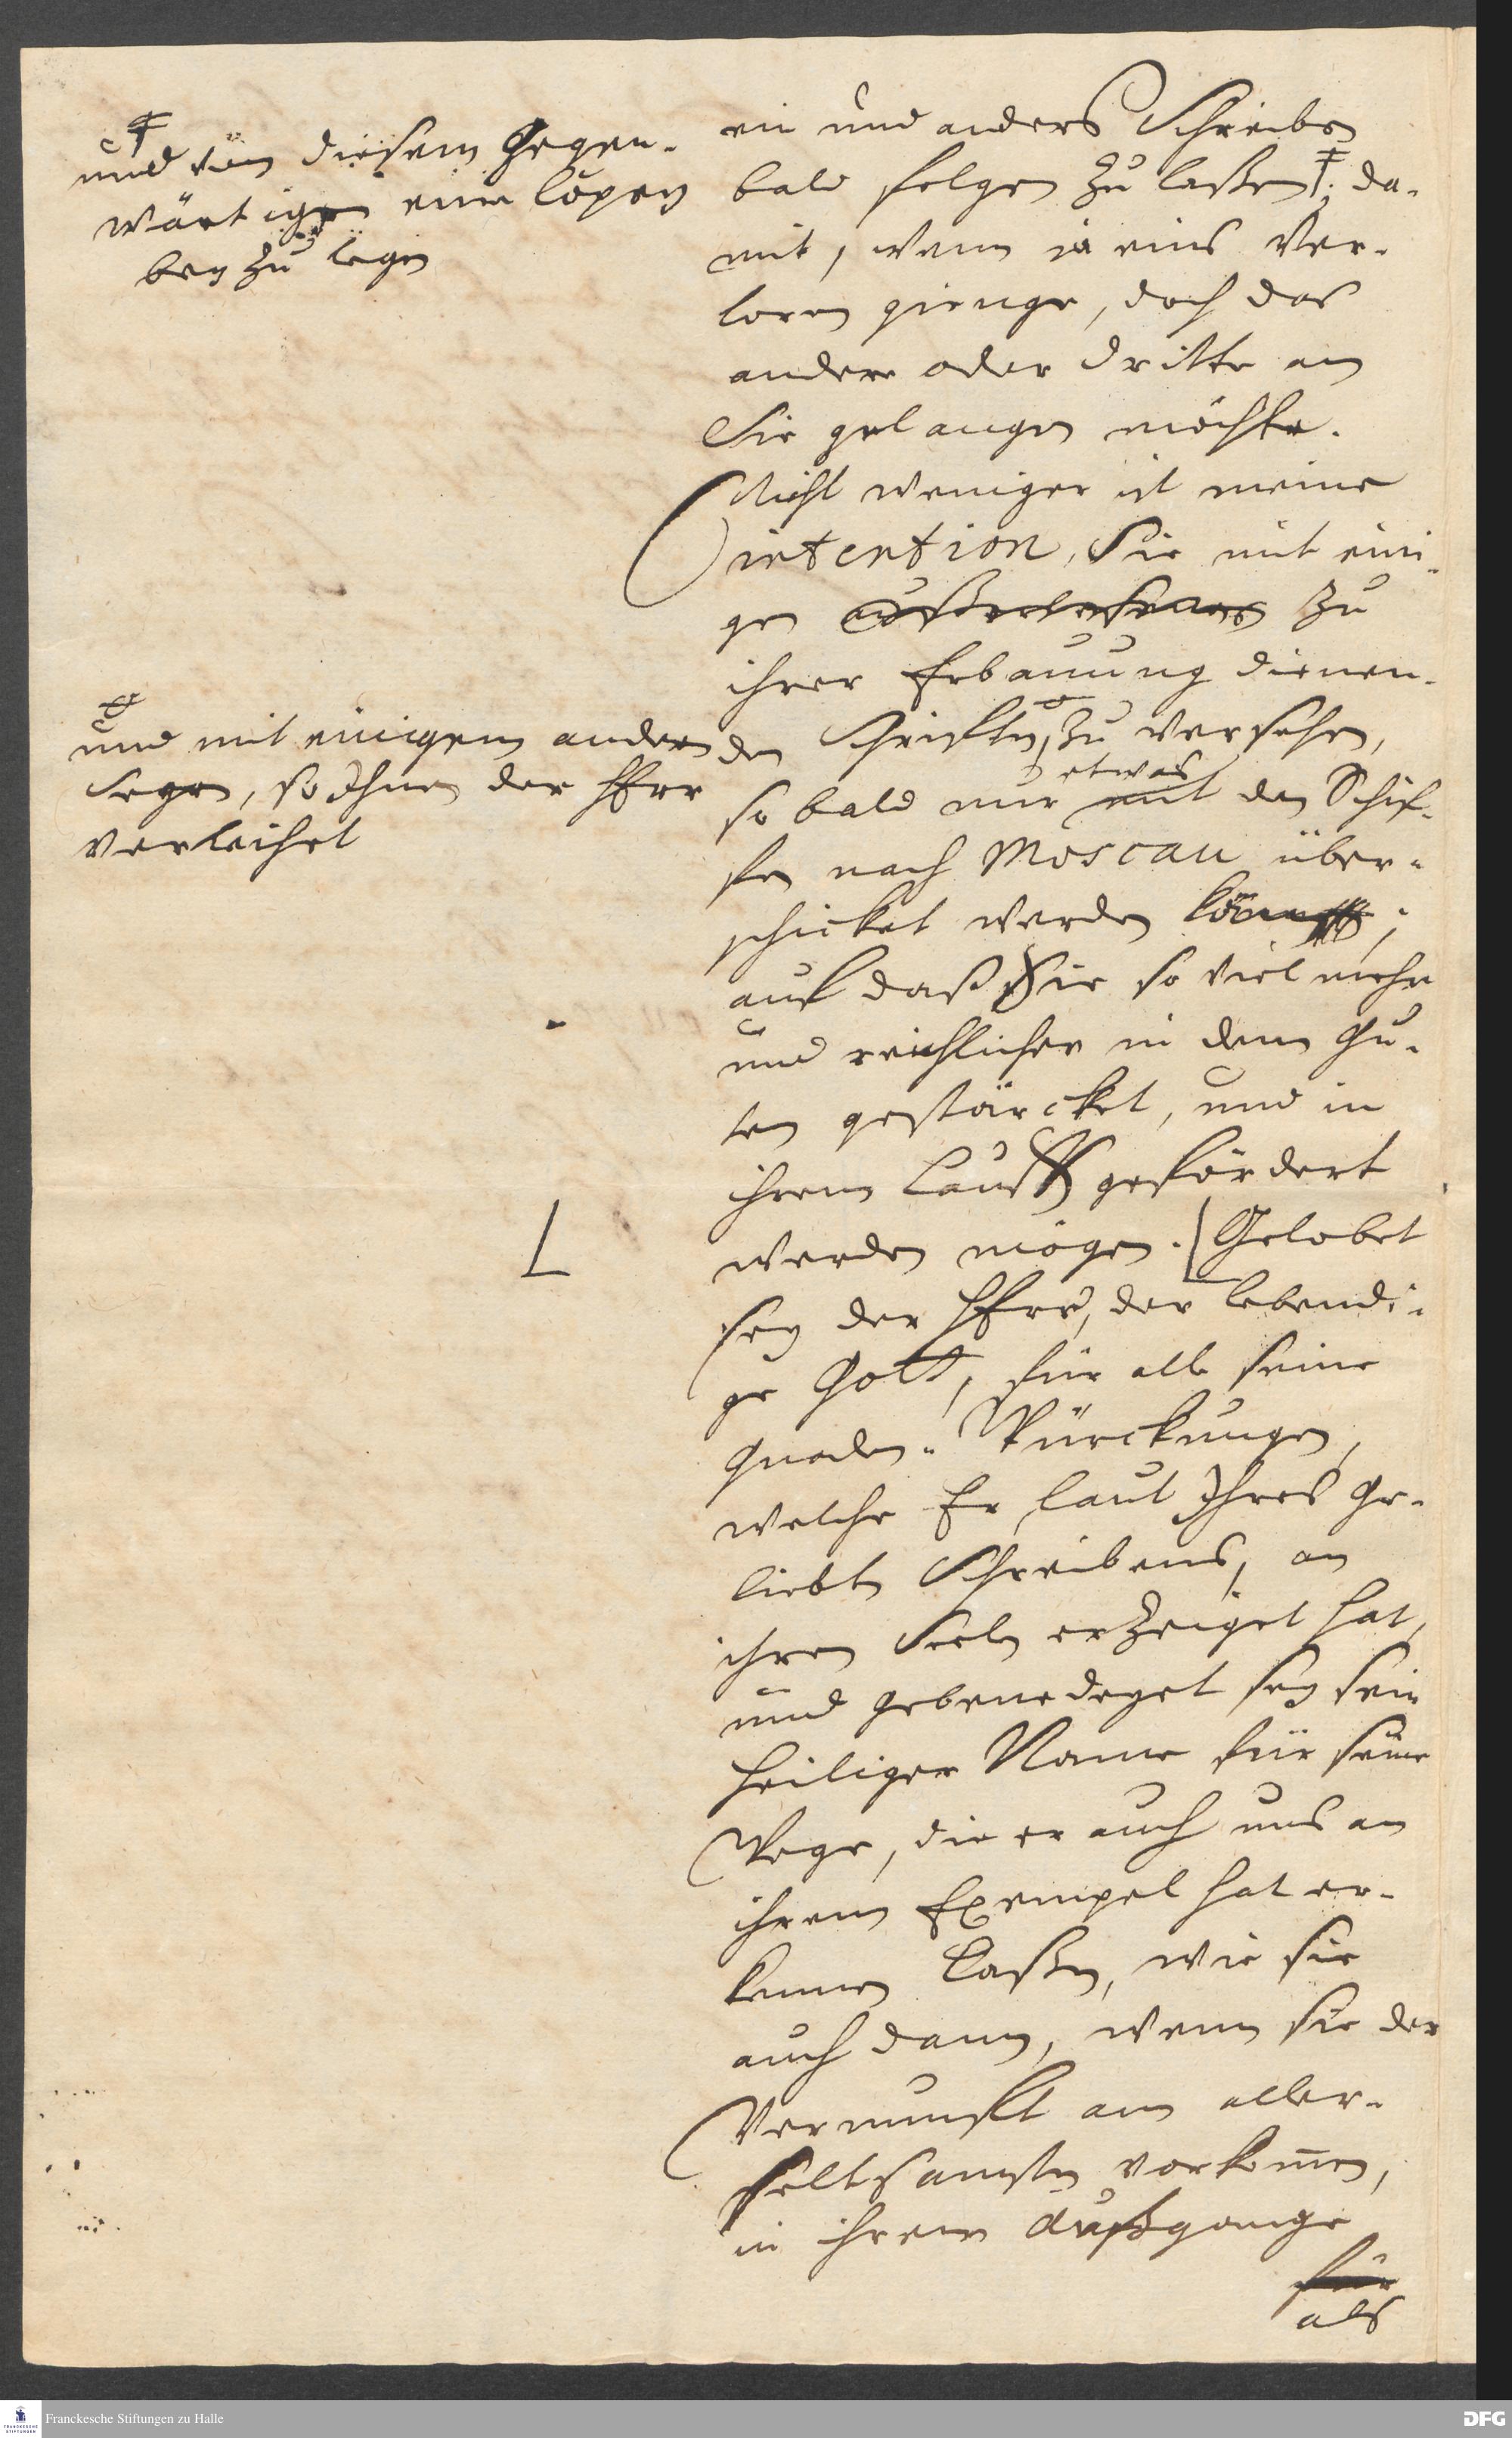 ein und anders Schreiben
bald folgen zu laßen ‡; da-
mit, wenn ia eins ver-
loren gienge, doch das
andere oder dritte an
Sie gelangen möchte.
Nicht weniger ist meine
intention, Sie mit eini-
gen außerlesenen zu
ihrer Erbauung dienen-
den Schrifften, zu versehen,
so bald nur etwas mit den Schif-
fen nach Moscau über-
schicket werden könne;
auf daß Sie so viel mehr
und reichlicher in dem Gu-
ten gestärcket, und in
ihrem Lauff gefördert
werden mögen. Gelobet
sey der HErr, der lebendi-
ge Gott, für alle seine
Gnaden-Würckungen,
welche Er, laut Ihres ge-
liebten Schreibens, an
ihren Seelen erzeiget hat,
und gebenedeyet sey sein
heiliger Name für seine
Wege, die er auch uns an
ihrem Exempel hat er-
kennen laßen, wie sie
auch dann, wenn sie der
Vernunfft am aller-
seltsamsten vorkom̄en,
in ihrem Außgange
für
als
‡
und von diesem Gegen-
wärtigen eine Copey
bey zu legen
und mit einigem andern
Segen, so Ihnen der HErr
verleihet
Franckesche Stiftungen zu Halle
DFG